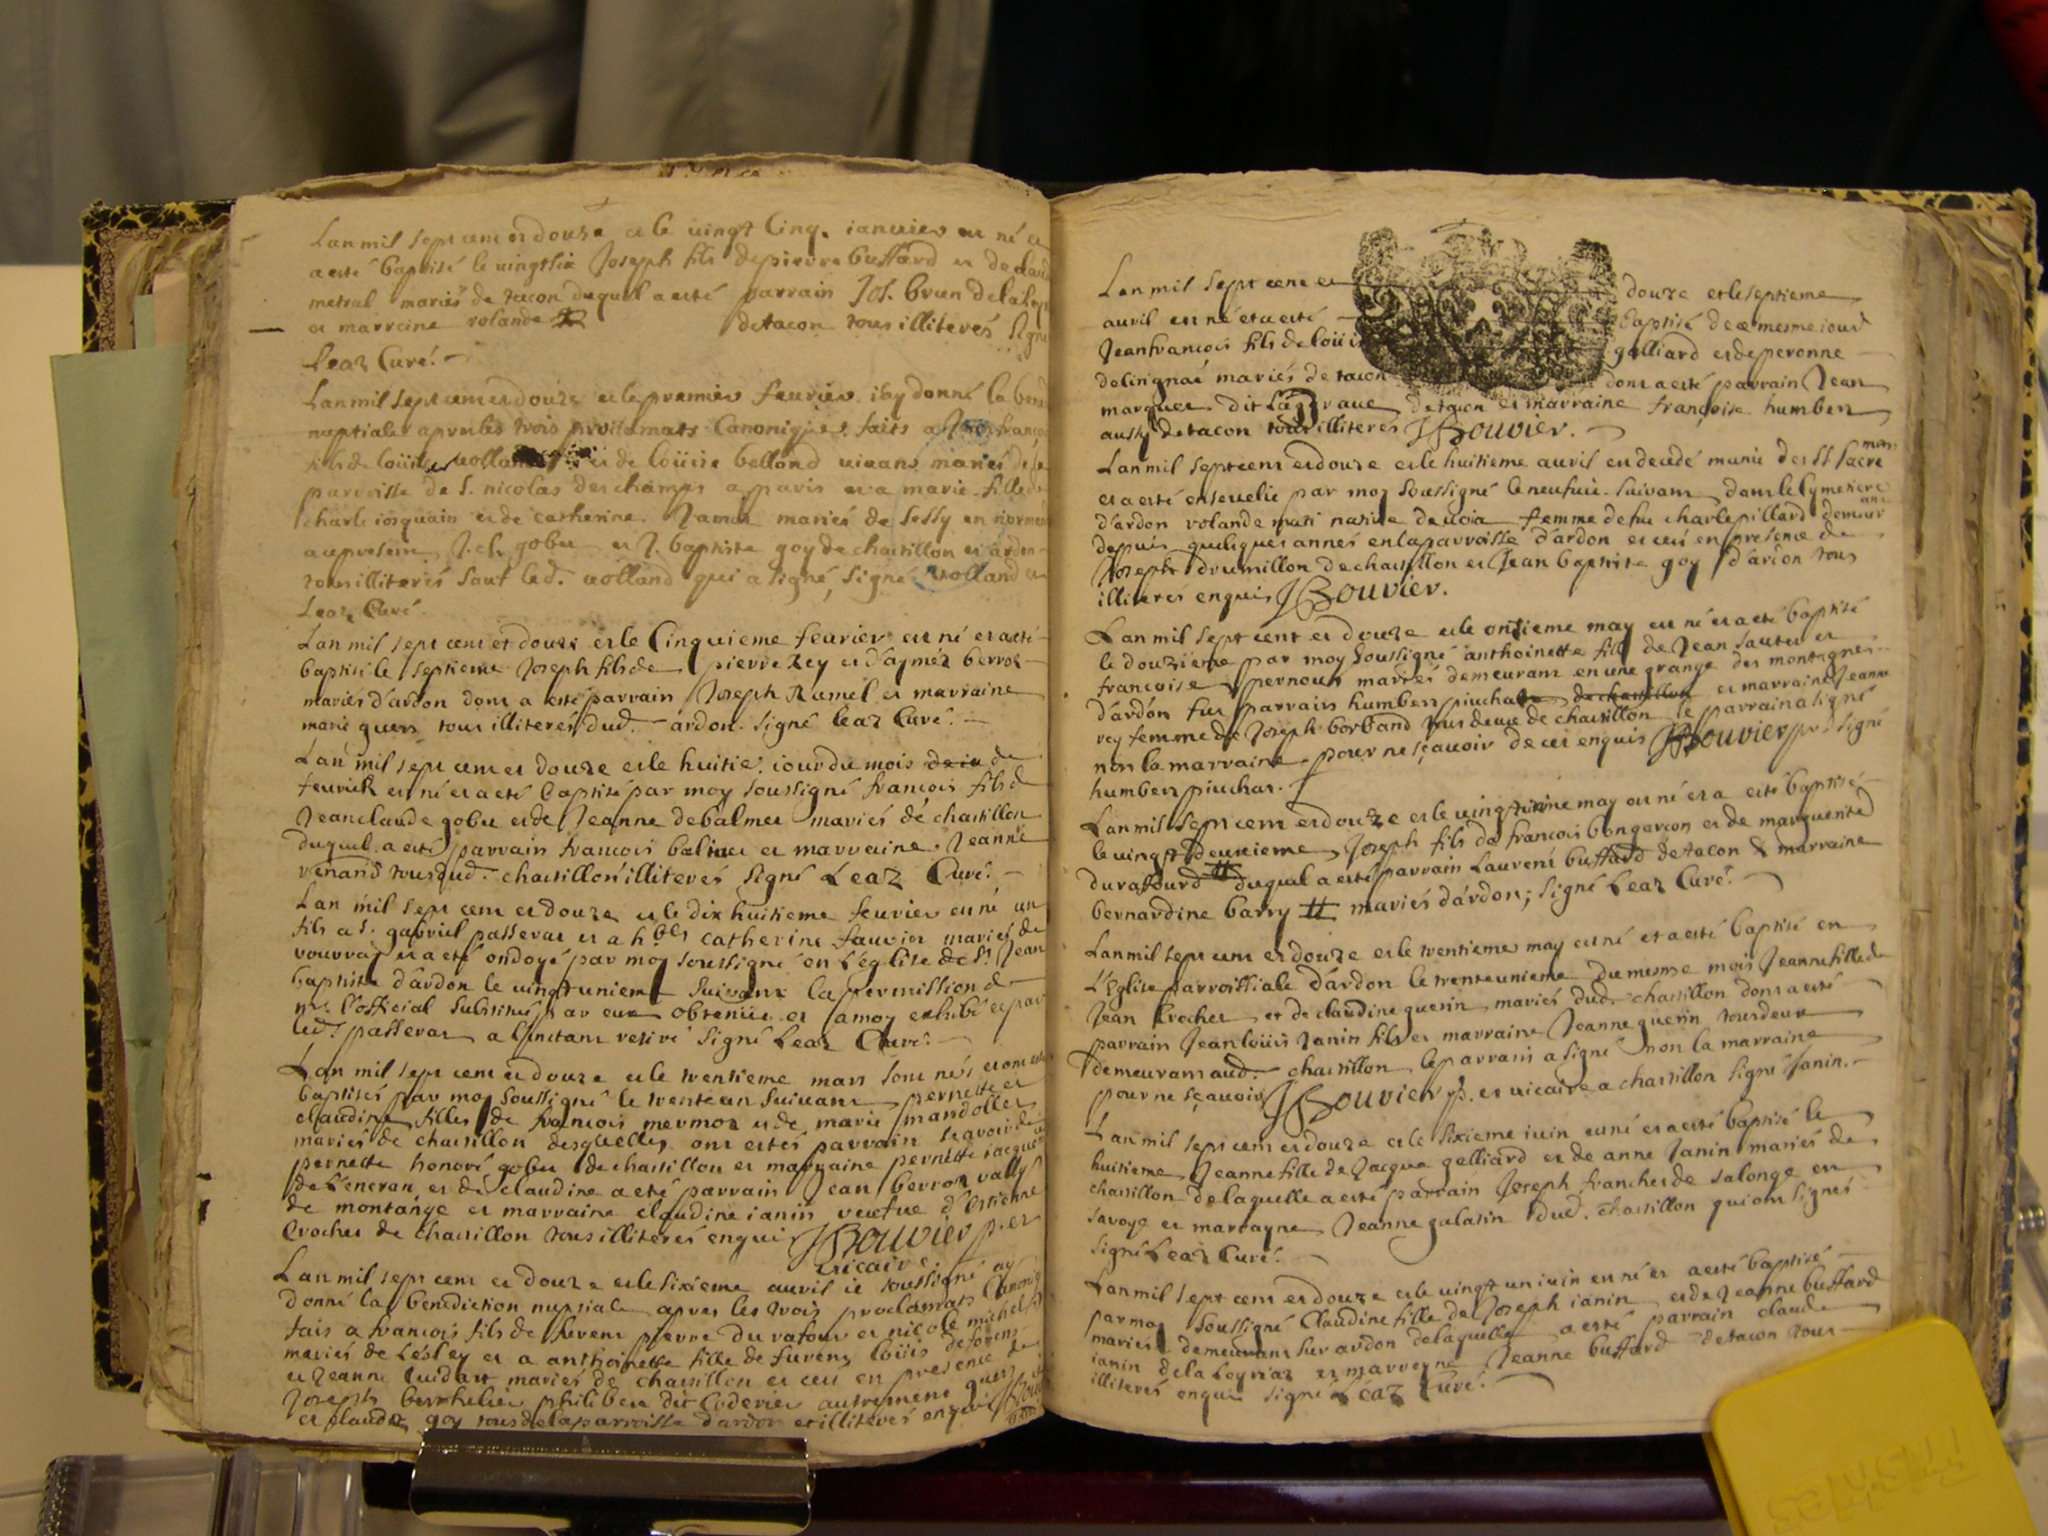 Lan mil sept cens et douze et le vingt cinq. ianvier est né et
a esté baptisé le vingtsix Joseph fils de pierre buffard et de claud
metral mariés de tacon duquel a esté parrain Jos. brun de la Ley
et marreine rolande de tacon tous illiterés signé
Leaz Curé.
Lan mil sept cens et douze et le premier fevrier iay donné la bened
nuptiale apres les trois proclamats canoniques faits a françois
fils de loüis volland et de loüise bellond vivans mariés de la
parroisse de S. nicolas des champs a paris et a marie fille de
charle iosquain et de catherine Jamat mariés de sessy en
au present J. cl. gobet et J. baptiste goy de chastillon et ardon
tous illiterés sauf led. volland qui a signé, signé volland et
Leaz Curé.
Lan mil sept cens et douze et le Cinquieme fevrier est né et a esté
baptisé le septieme Joseph fils de pierre Rey et d'aymée berrod
mariés d'ardon dont a esté parrain Joseph Ramel et marraine
marie guers tous illiterés dud. ardon. signé Leaz Curé.
Lan mil sept cens et douze et le huitie. iour du mois de
fevrier est né et a esté baptisé par moy soussigné françois fils de
Jean claude gobet et de Jeanne debalmes mariés de chastillon
duquel a esté parrain francois balmes et marraine Jeanne
venand tous dud. chastillon illiterés signé Leaz Curé.
Lan mil sept cens et douze et le dix huitieme fevrier est né un
fils a S. gabriel passerat et a h.ble catherine fauvin mariés de
vouvray et a esté ondoyé par moy soussigné en L'église de St Jean
baptiste d'ardon le vingt unieme suivant la permission de
mr. l'official substitué par eux obtenüe et a moy exhibé et par
led. passerat a l'instant retiré signé Leaz Curé.
Lan mil sept cens et douze et le trentieme mars sont nés et ont esté
baptisés par moy soussigné le trente un suivant pernette et
claudine filles de françois mermoz et de marie mandollet
mariés de chastillon desquelles ont estés parrain scavoir de
pernette honoré gobet de chastillon et marraine pernette iacquin
de L'encran et de claudine a esté parrain Jean berrod vally
de montange et marraine claudine ianin veufve d'Estienne
Crochet de chastillon tous illiterés enquis JBouvier p. et
vicaire.
Lan mil sept cens et douze et le sixieme avril ie soussigné ay
donné la benediction nuptiale apres les trois proclamats Canoniq
fais a francois fils de furent pierre du rafour et nicole michel
mariés de Lesley et a anthoinette fille de furent loüis deforens
et Jeanne Luidart mariés de chastillon et ceci en presence de
Joseph berthelier philibert dit Coderier autrement guers
et claude goy tous de la parroisse d'ardon et illiterés enquis JBouvier
Lan mil sept cens et douze et le septieme
avril est né et a esté baptisé de ce mesme iour
Jean francois fils de loüis galliard et de peronne
de lingnac mariés de tacon dont a esté parrain Jean
marquet dit La grave de tacon et marraine françoise humbert
aussy de tacon tous illiterés JBouvier.
Lan mil sept cens et douze et le huitieme avril est decedé munie des SS sacremens
et a esté ensevelie par moy soussigné le neufvie. suivant dans le cymetiere
d'ardon rolande mati native de voia femme de fu charle pillard demeurant
depuis quelques annes en la parroisse d'ardon et ceci en presence de
Joseph drumillon de chastillon et Jean baptiste goy d'ardon tous
illiterés enquis JBouvier.
Lan mil sept cent et douze et le onzieme may est né et a eté baptisé
le douzieme par moy soussigné anthoinette fille de Jean sautet et
francoise pernoux mariés demeurant en une grange des montagnes
d'ardon fut parrain humbert piuchat de chastillon et marraine Jeanne
rey femme de Joseph borband tous deux de chastillon le parrain a signé
non la marraine pour ne sçavoir de ceci enquis JBouvier p. signé
humbert piuchat.
Lan mil sept cens et douze et le vingtunieme may est né et a esté baptisé
le vingt deuxieme Joseph fils de francois bongarcon et de marguerite
duraffourd # duquel a esté parrain Laurent buffard de tacon & marraine
bernardine barry # mariés d'ardon; signé Leaz Curé.
Lan mil sept cens et douze et le trentieme may est né et a esté baptisé en
L'Eglise parroissiale d'ardon le trente unieme du mesme mois Jeanne fille de
Jean Crochet et de claudine guerin mariés dud. chastillon dont a esté
parrain Jean loüis Janin fils et marraine Jeanne guerin tous deux
demeurans aud. chastillon le parrain a signé non la marraine
pour ne sçavoir JBouvier p. et vicaire a chastillon signé Janin.
Lan mil sept cens et douze et le sixieme iuin est né et a esté baptisé le
huitieme Jeanne fille de Jacque galliard et de anne Janin mariés de
chastillon de laquelle a esté parrain Joseph franchet de salonge en
savoye et marrayne Jeanne galatin dud. chastillon qui ont signés
signé Leaz Curé.
Lan mil sept cens et douze et le vingt un iuin est né et a esté baptisé
par moy soussigné Claudine fille de Joseph ianin et de Jeanne buffard
mariés demeurans sur ardon de laquelle a esté parrain claude
ianin de la Leyriaz et marreyne Jeanne buffard de tacon tous
illiterés enquis signé Leaz Curé.